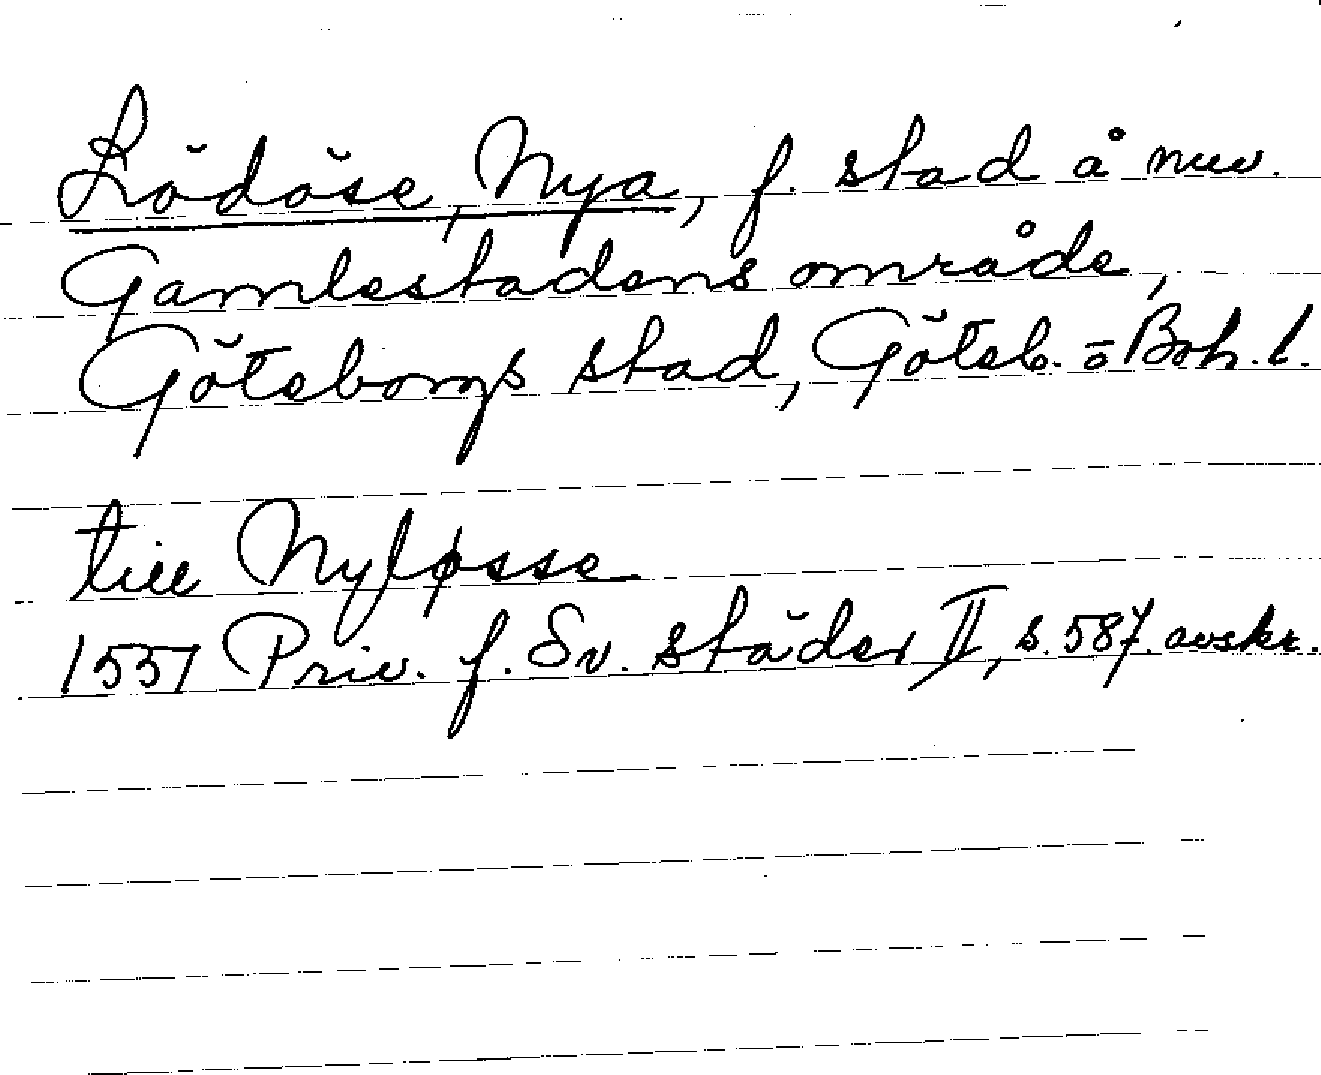 Lödöse, Nya, f. stad å nuv.
Gamlestadens område,
Göteborgs stad, Göteb. o Boh. l.
till Nyløsse
1557 Priv. f. Sv. städer II, s. 587. avskr.